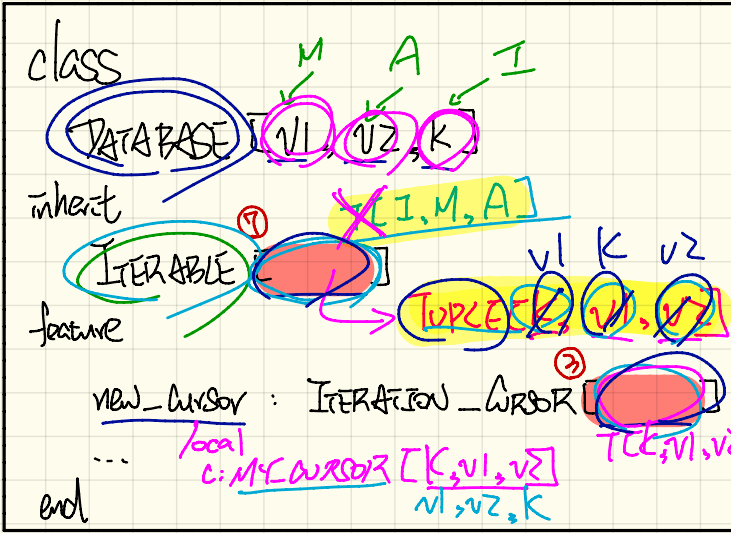 M A I
class
DATABASE [V1, V2, K]
inherit
T[I, M, A]
7
ITERABLE [ ]
V1 K V2
TUPLE[K, V1, V2]
feature
3
new_cursor : ITERATION_CURSOR[ ]
local T[K, V1, V2
... c: MY_CURSOR [K, V1, V2]
V1, V2, K
end